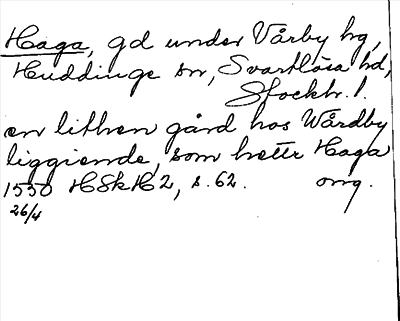 Haga, gd under Vårby hg,
Huddinge sn, Svartlösa hd,
Stockh. l.
en lithen gård hos Wårdby
liggiende, som hetter Haga
1550 HSkH2, s. 62. omg.
26/4